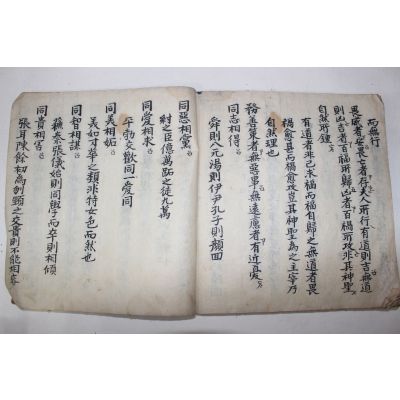 而無行
畏危者安畏亡者存夫人所行有道則吉無道
則凶吉者百福所歸凶者百禍所攻非其神聖
自然所鍾
有道者非己求福而福自歸之無道者畏
禍愈甚而禍愈攻豈其神聖為之主宰乃
自然理也
務善策者無惡事無遠慮者有近憂
同志相得
舜則八元湯則伊尹孔子則顏回
同惡相黨
紂之臣億萬跖之徒九萬
同愛相求
平勃交歡同一愛同
同美相妬
美如寸莘之類非特女色而然也
同智相謀
蘇秦張儀始則同學而卒則相傾
同貴相害
張耳陳餘初為刎頸之交貴則不能相容